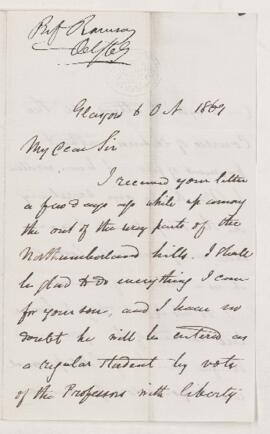 Prof Ramsay
Oct/69
Glasgow 6 Oct 1869
My Dear Sir
I received your letter
a few days ago while up among
the out of the way parts of the
Northumberland hills. I shall
be glad to do everything I can
for your son, and I have no
doubt he will be entered as
a regular student by vote
of the Professors with liberty